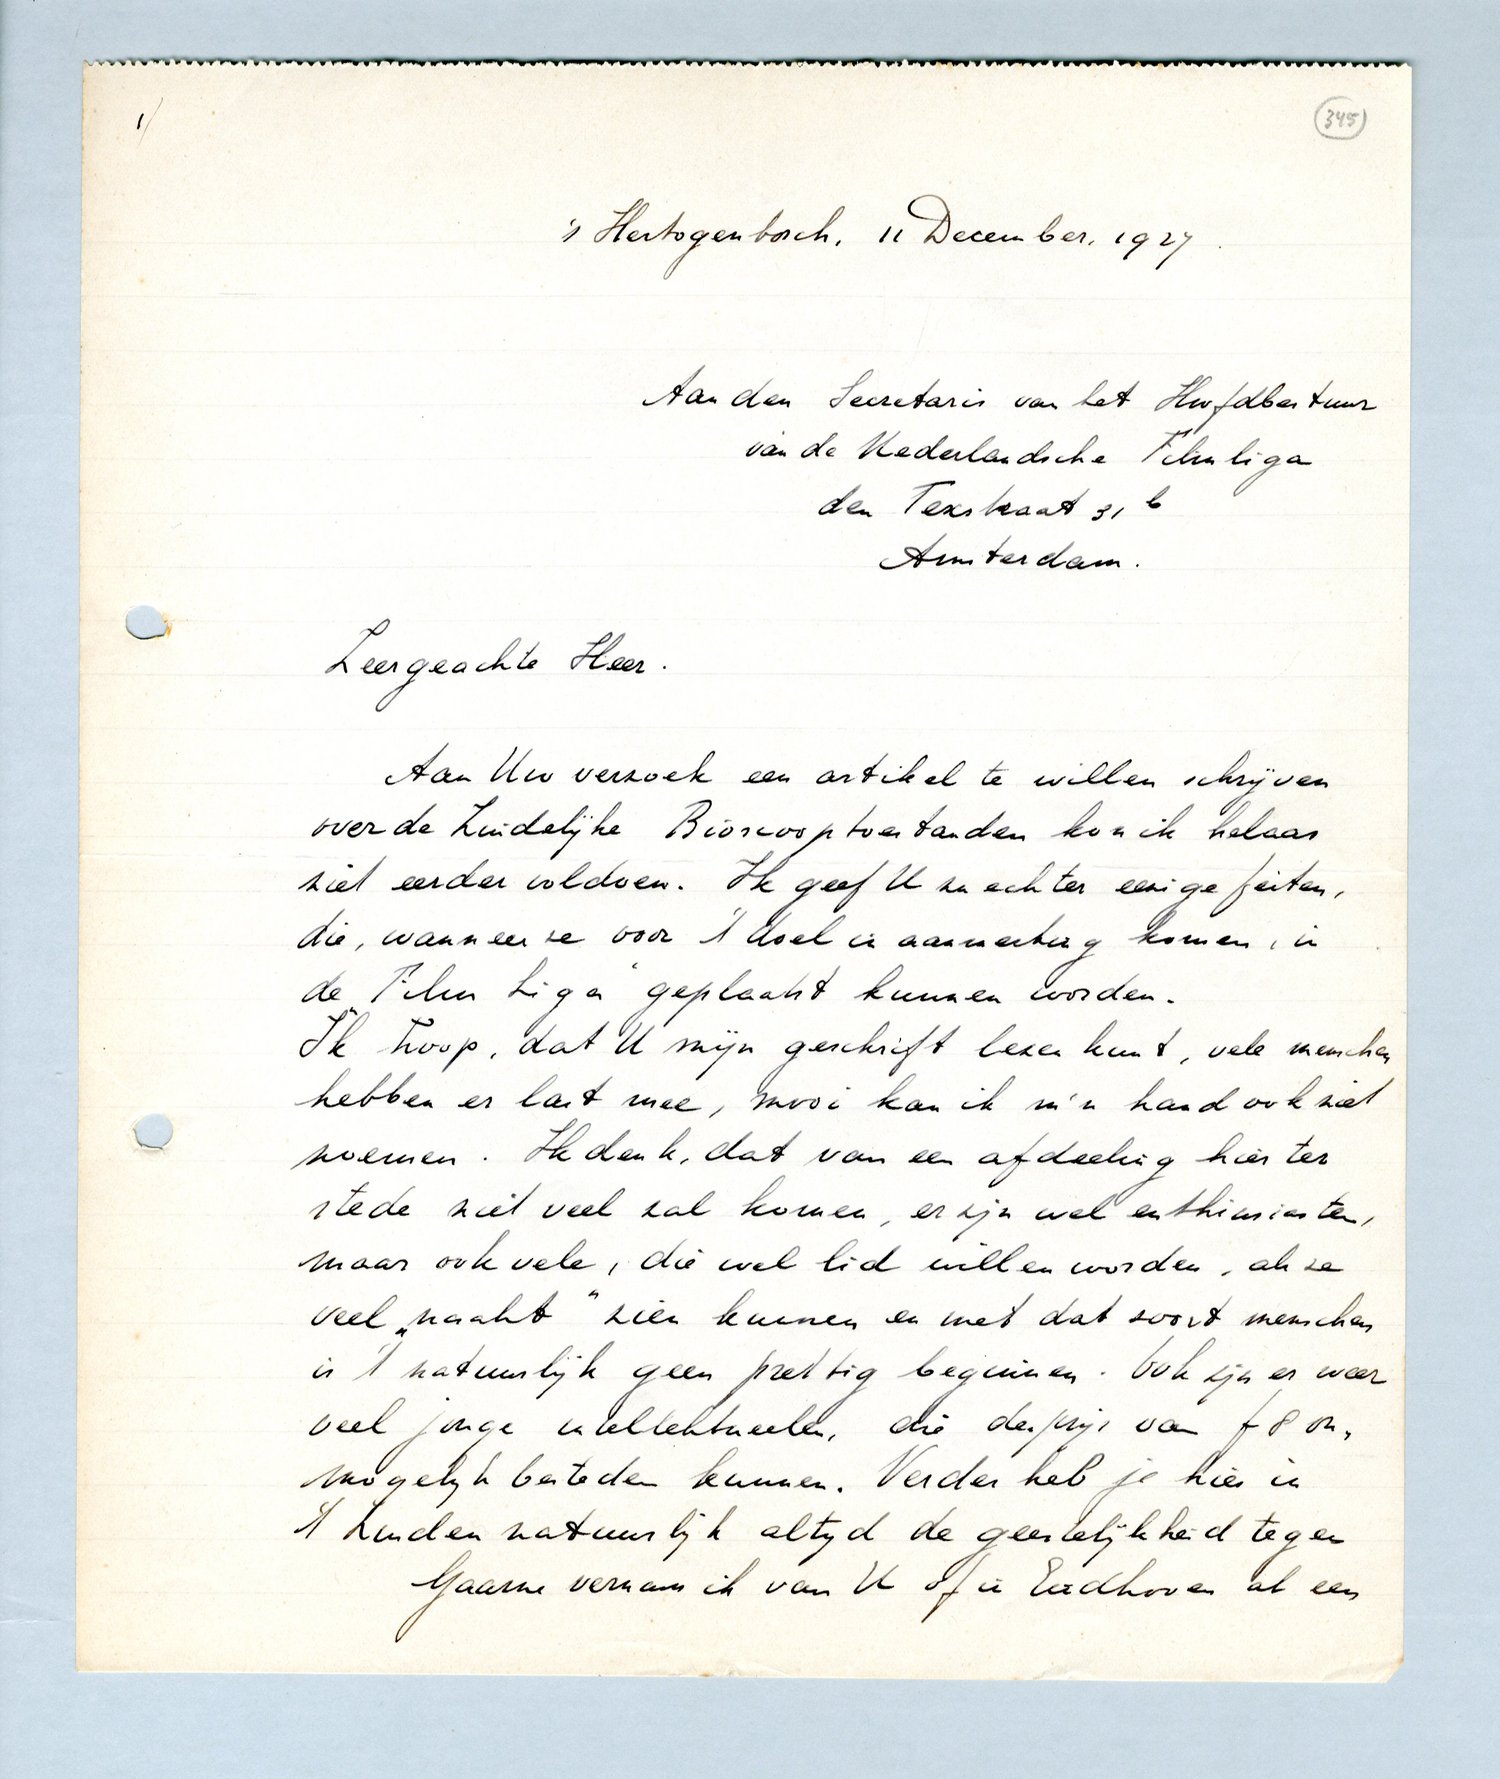 1/
345
's Hertogenbosch, 11 December. 1927.
Aan den Secretaris van het Hoofdbestuur
van de Nederlandsche Filmliga
den Texstraat 31 b
Amsterdam.
Zeergeachte Heer.
Aan Uw verzoek een artikel te willen schrijven
over de Zuidelijke Bioscooptoestanden kon ik helaas
niet eerder voldoen. Ik geef U nu echter eenige feiten,
die, wanneer ze voor 't doel in aanmerking komen, in
de „Film Liga" geplaatst kunnen worden.
Ik hoop, dat U mijn geschrift lezen kunt, vele menschen
hebben er last mee, mooi kan ik m'n hand ook niet
noemen. Ik denk, dat van een afdeeling hier ter
stede niet veel zal komen, er zijn wel enthusiasten,
maar ook vele, die wel lid willen worden, als ze
veel „naakt" zien kunnen en met dat soort menschen
is 't natuurlijk geen prettig beginnen. Ook zijn er weer
veel jonge intellektueelen, die den prijs van f 8 on-
mogelijk besteden kunnen. Verder heb je hier in
't Zuiden natuurlijk altijd de geestelijkheid tegen
Gaarne vernam ik van U of in Eindhoven al een